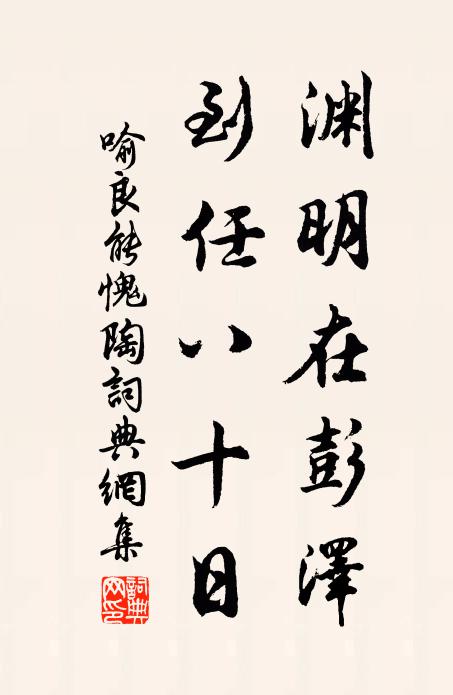 渊明在彭澤
到任八十日
喻良能愧陶詞典網集
詞典網印